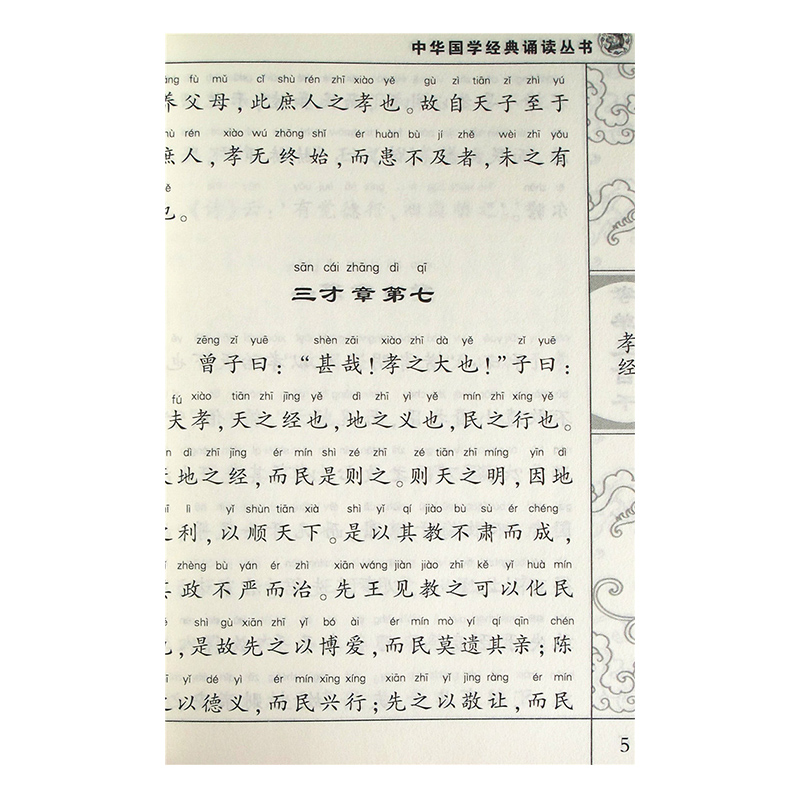 中华国学经典诵读丛书
fù mǔ cǐ shù rén zhī xiào yě gù zì tiān zǐ zhì yú
养父母，此庶人之孝也。故自天子至于
rén xiào wú zhōng shǐ ér huàn bù jí zhě wèi zhī yǒu
庶人，孝无终始，而患不及者，未之有
也。
sān cái zhāng dì qī
三才章第七
zēng zǐ yuē shèn zāi xiào zhī dà yě zǐ yuē
曾子曰：“甚哉！孝之大也！”子曰：
fú xiào tiān zhī jīng yě dì zhī yì yě mín zhī xíng yě
夫孝，天之经也，地之义也，民之行也。
dì zhī jīng ér mín shì zé zhī zé tiān zhī míng yīn dì
天地之经，而民是则之。则天之明，因地
lì yǐ shùn tiān xià shì yǐ qí jiào bù sù ér chéng
之利，以顺天下。是以其教不肃而成，
zhèng bù yán ér zhì xiān wáng jiàn jiào zhī kě yǐ huà mín
其政不严而治。先王见教之可以化民
shì gù xiān zhī yǐ bó ài ér mín mò yí qí qīn chén
也，是故先之以博爱，而民莫遗其亲；陈
yǐ dé yì ér mín xīng xíng xiān zhī yǐ jìng ràng ér mín
之以德义，而民兴行；先之以敬让，而民
孝经
5